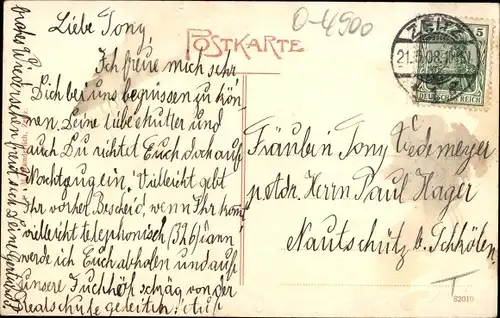 Liebe Tony,
Ich freue mich sehr
Dich bei uns begrüssen zu kön-
nen. Deine liebe Mutter und
auch Du richtet Euch doch auf
Nachtzug ein? Vielleicht gebt
Ihr vorher Bescheid, wenn Ihr kom
vielleicht telephonisch (326) dann
werde ich Euch abholen und auf
unsere
schräg von der
Realschule geleiten.
frohes Wiedersehen freut sich Deine
POSTKARTE
O-4900
ZEITZ
21.5.08.
5
DEUTSCHES REICH
Fräulein Tony Tiedemeyer
p. Adr. Herrn Paul Hager
Nautschütz b. Schkölen.
T
S2010